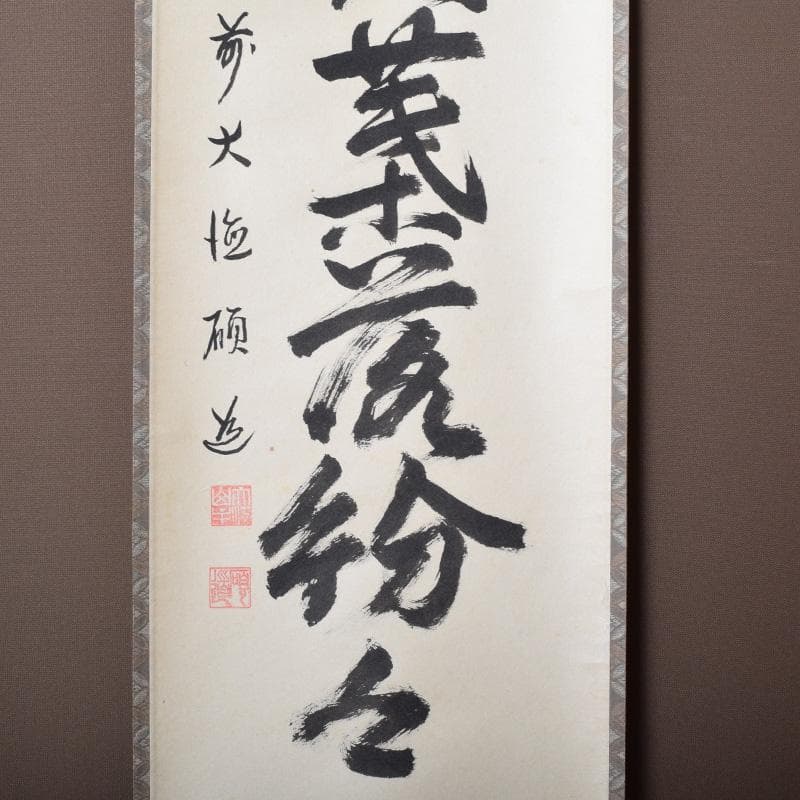 葉落紛々
前大徳碩道